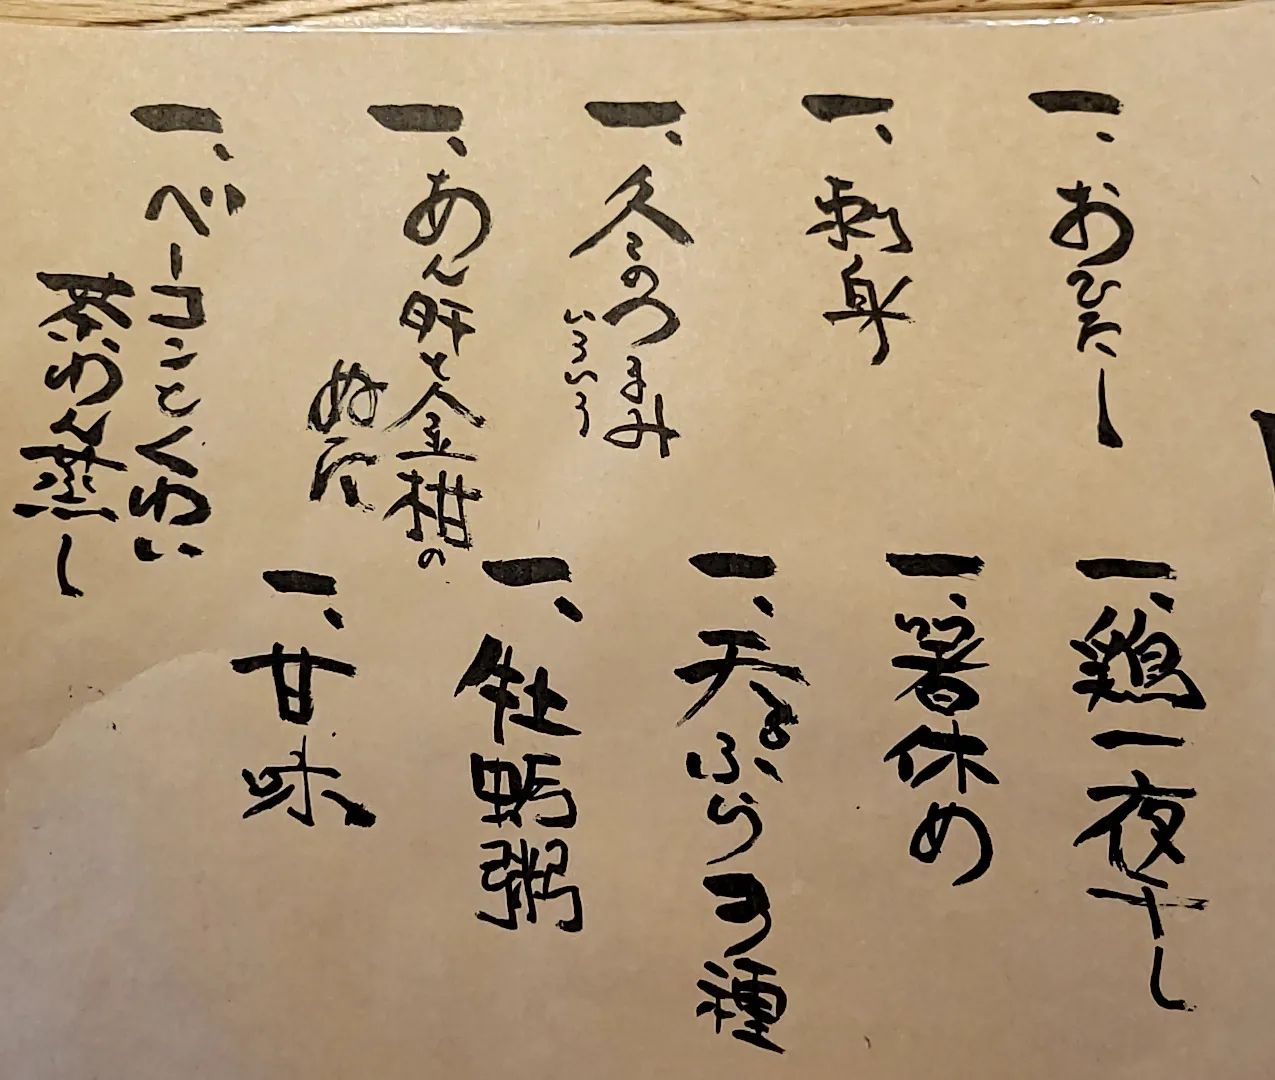 一、おひたし
一、刺身
一、冬のつまみ
いろいろ
一、あん肝と金柑の
ぬた
一、ベーコンとくわい
茶わん蒸し
一、鶏一夜干し
一、箸休め
一、天ぷら
種
一、牡蠣粥
一、甘味